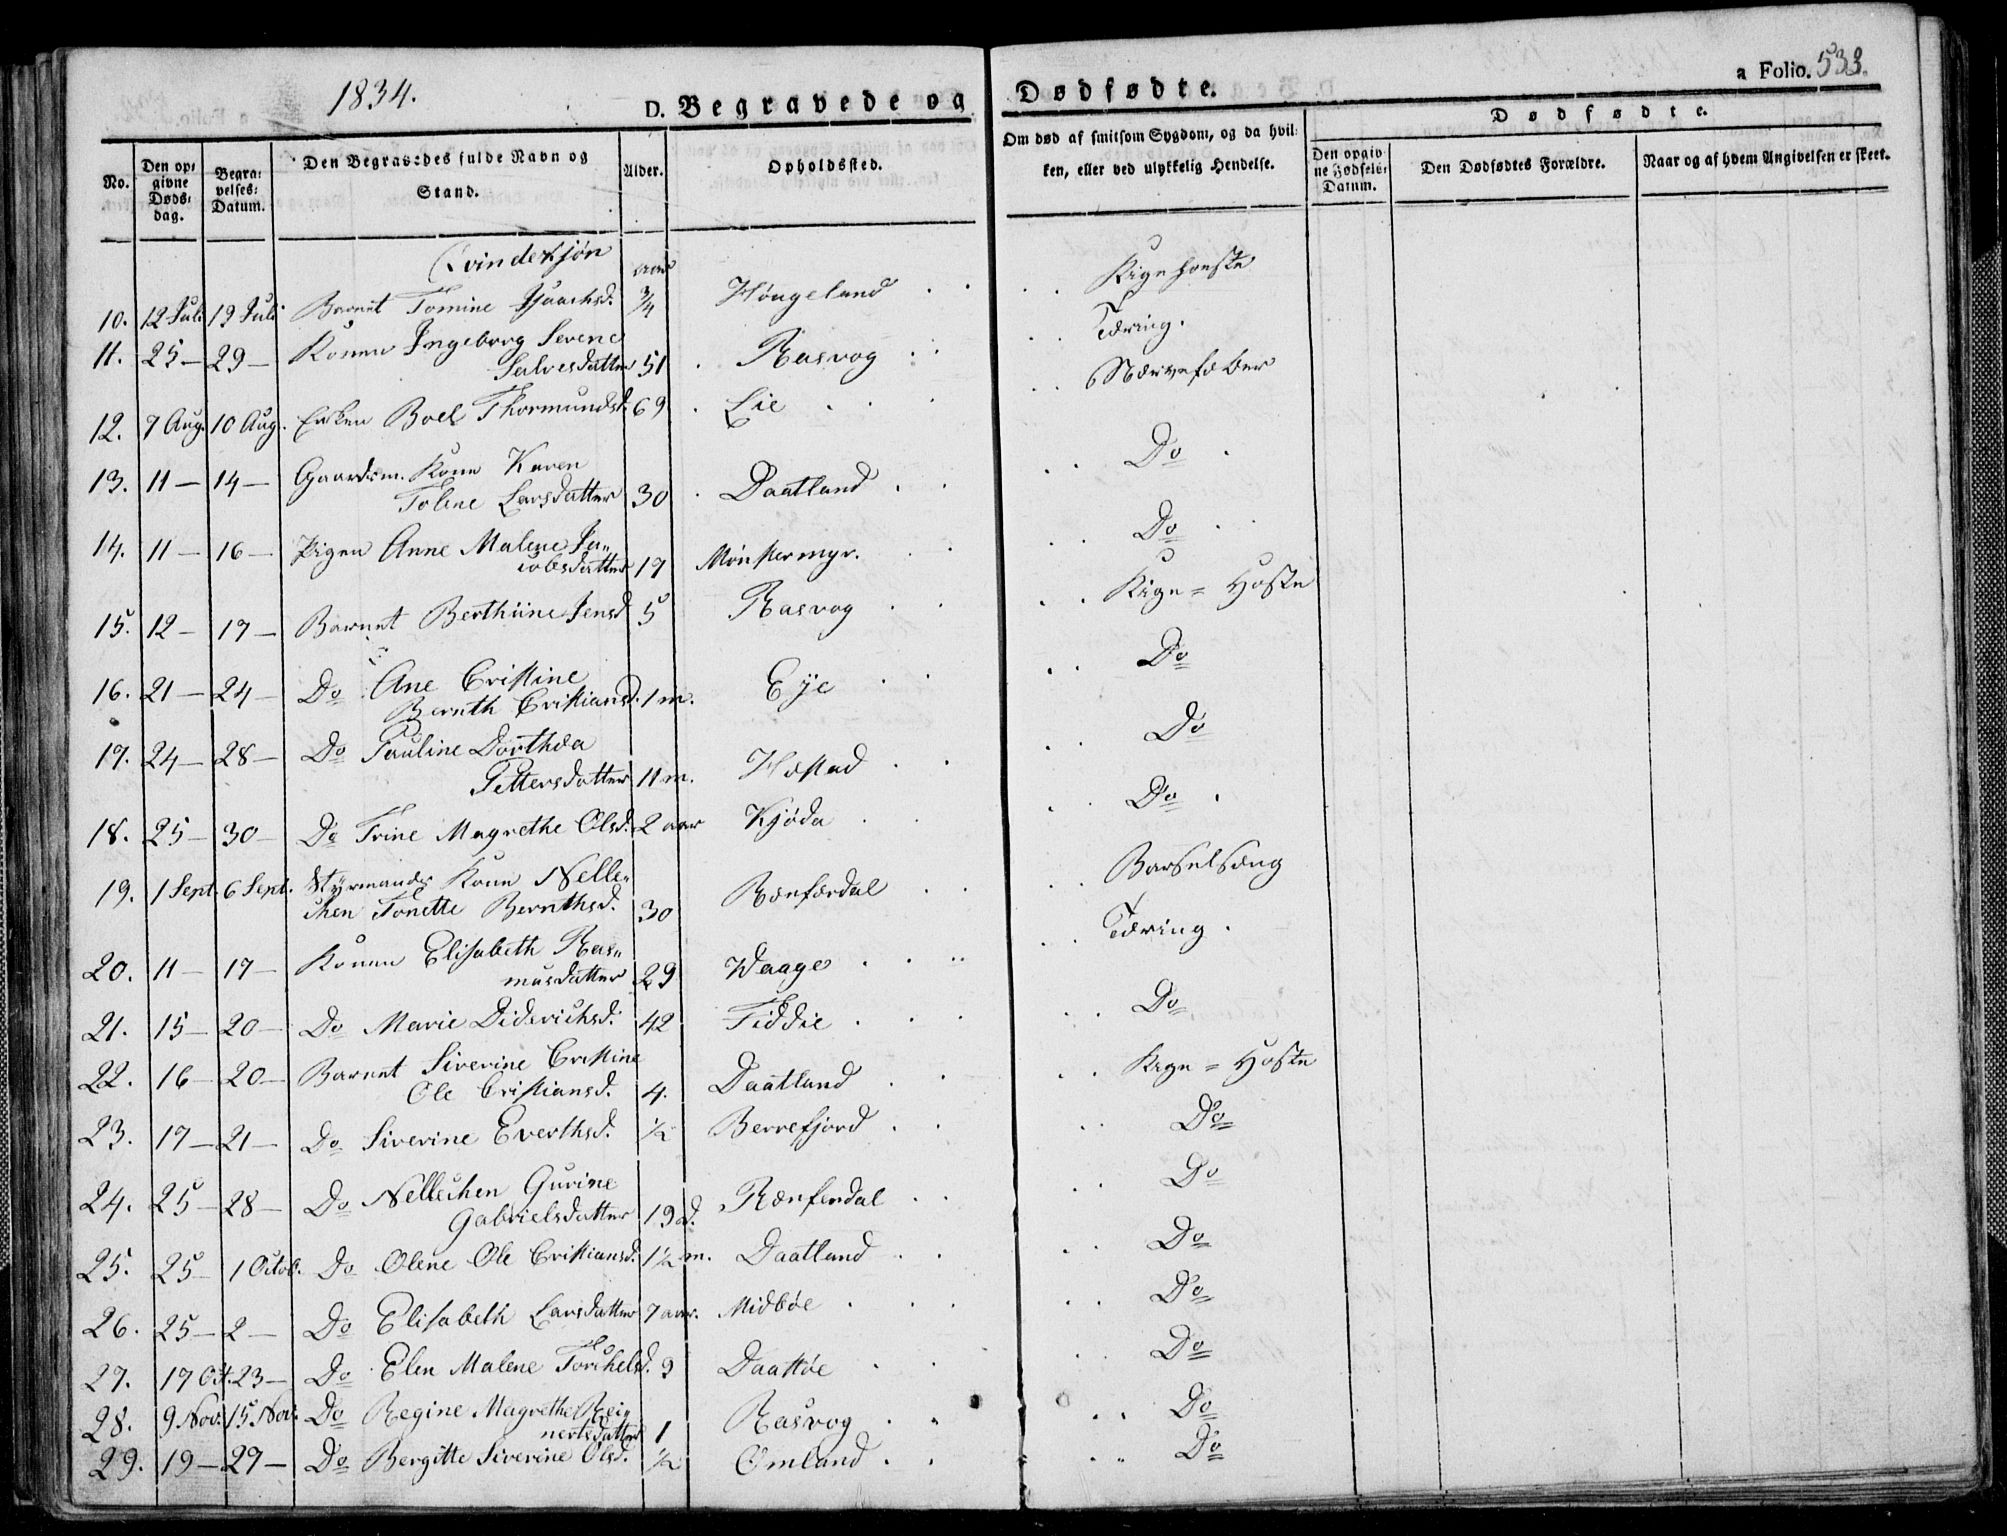 1834.
D. Begravede og Dødfødte.
a Folio. 533.
No.
Den opgivne Dødsdag.
Begravelses-Datum.
Den Begravedes fulde Navn og Stand.
Alder.
Opholdssted.
Om død af smitsom Sygdom, og da hvilken, eller ved ulykkelig Hendelse.
Dødfødte.
Den opgivne Fødsels-Datum.
Den Dødfødtes Forældre.
Naar og af hvem Angivelsen er skeet.
Qvindekjøn
aar
10. 12 Juli 19 Juli Barnet Tomine Isaachsd. 3/4 Høugeland . . . . Kigehoste
11. 25 – 29 – Konen Ingeborg Serene
Salvesdatter 51 . Rasvog . . . . Tæring.
12. 7 Aug. 10 Aug. Enken Boel Thormundsd. 69 . Lie . . . . . Nærvefeber
13. 11 – 14 – Gaardm. Kone Karen
Tolene Larsdatter 30 . Daatland . . . . Do .
14. 11 – 16 – Pigen Anne Malene Ja-
cobsdatter 17 Mønstermyr. . . . . Do
15. 12 – 17 – Barnet Berthine Jensd 5 Rasvog . . . . Kige = Hoste
16. 21 – 24 – Do Ane Cristine
Bernth Cristiansd. 1 m. Eye . . . . Do
17. 24 – 28 – Do Pauline Dorthea
Pettersdatter 11 m. Hæstad . . . . Do
18. 25 – 30 – Do Trine Magrethe Olsd. 2 aar Kjøda . . . . Do .
19. 1 Sept. 6 Sept. Styrmands Kone Nelle-
chen Tonette Bernthsd. 30 Rænfærdal . . . . Barselseng
20. 11 – 17 – Konen Elisabeth Ras-
musdatter 29 Waage . . . . Tæring .
21. 15 – 20 – Do Marie Diderichsd. 42 Fiddie . . . . Do
22. 16 – 20 – Barnet Siverine Cristine
Ole Cristiansd. 4. Daatland . . . . Kige = Hoste
23. 17 – 21 – Do Siverine Everthsd. 1/2 Berrefjord . . . . Do
24. 25 – 28 – Do Nellechen Gurine
Gabrielsdatter 19 d. Rænferdal . . . . Do
25. 25 – 1 Octob. Do Olene Ole Cristiansd. 1 1/2 m. Daatland . . . . Do
26. 25 – 2 – Do Elisabeth Larsdatter 7 aar. Midbøe . . . . Do
27. 17 Oct. 23 – Do Elen Malene Torchelsd. 9 Daattøe . . . . Do
28. 9 Nov. 15 Nov. Do Regine Magrethe Rei-
nertsdatter 1 Rasvog . . . . Do
29. 19 – 27 – Do Bergitte Siverine Olsd. 1/2 Omland . . . . Do